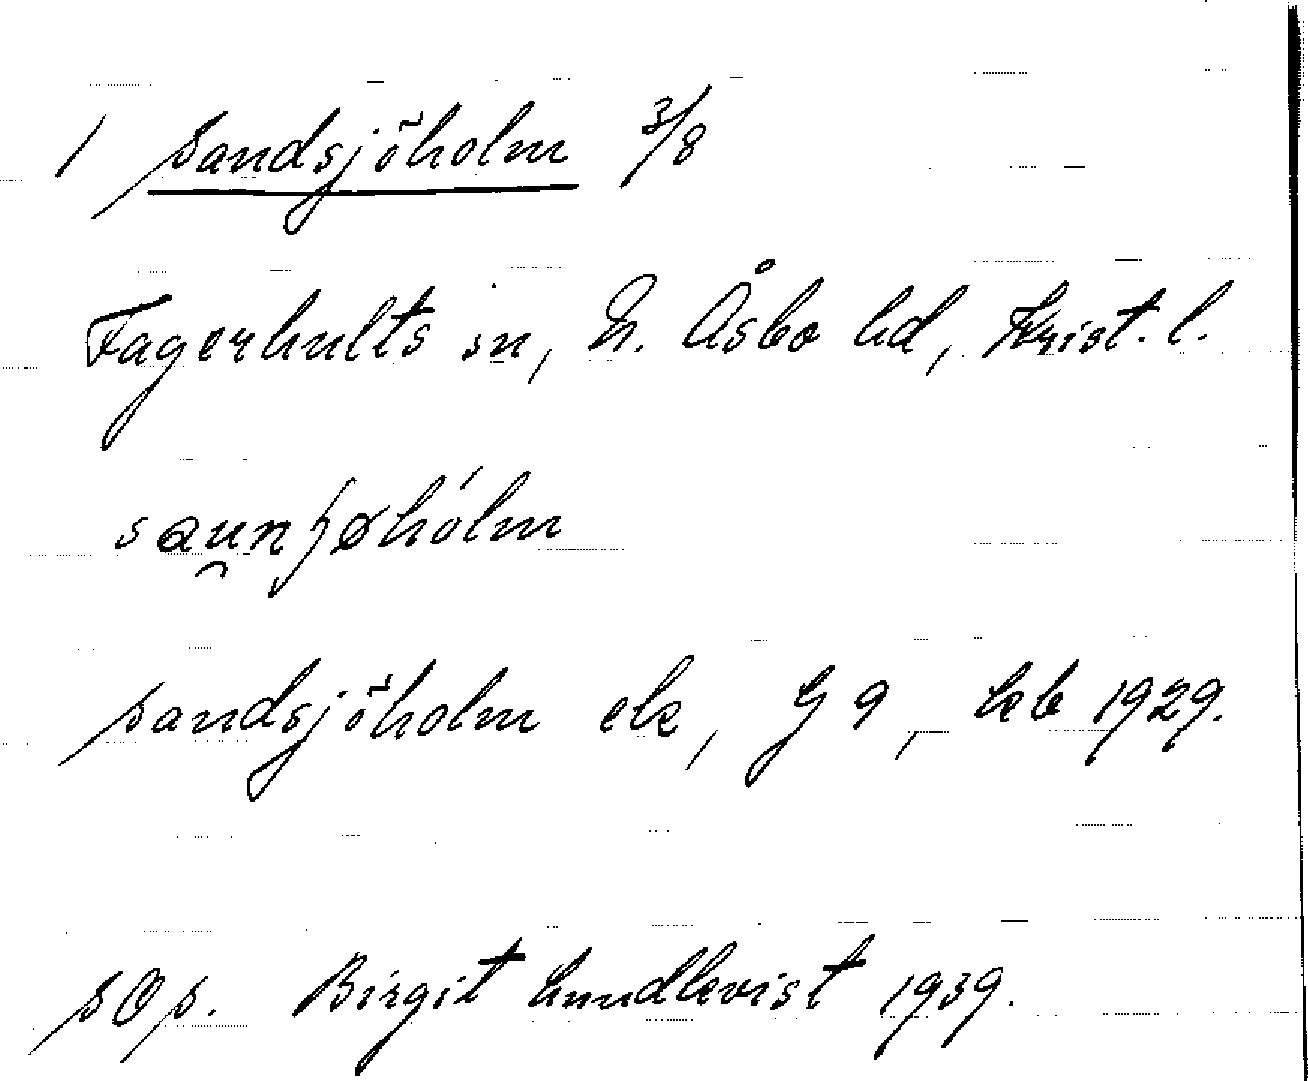 1 Sandsjöholm 3/8
Fagerhults sn, N. Åsbo hd, Krist. l.
Sandsjöholm ek, G 9, kb 1929.
SOS. Birgit Lundkvist 1939.